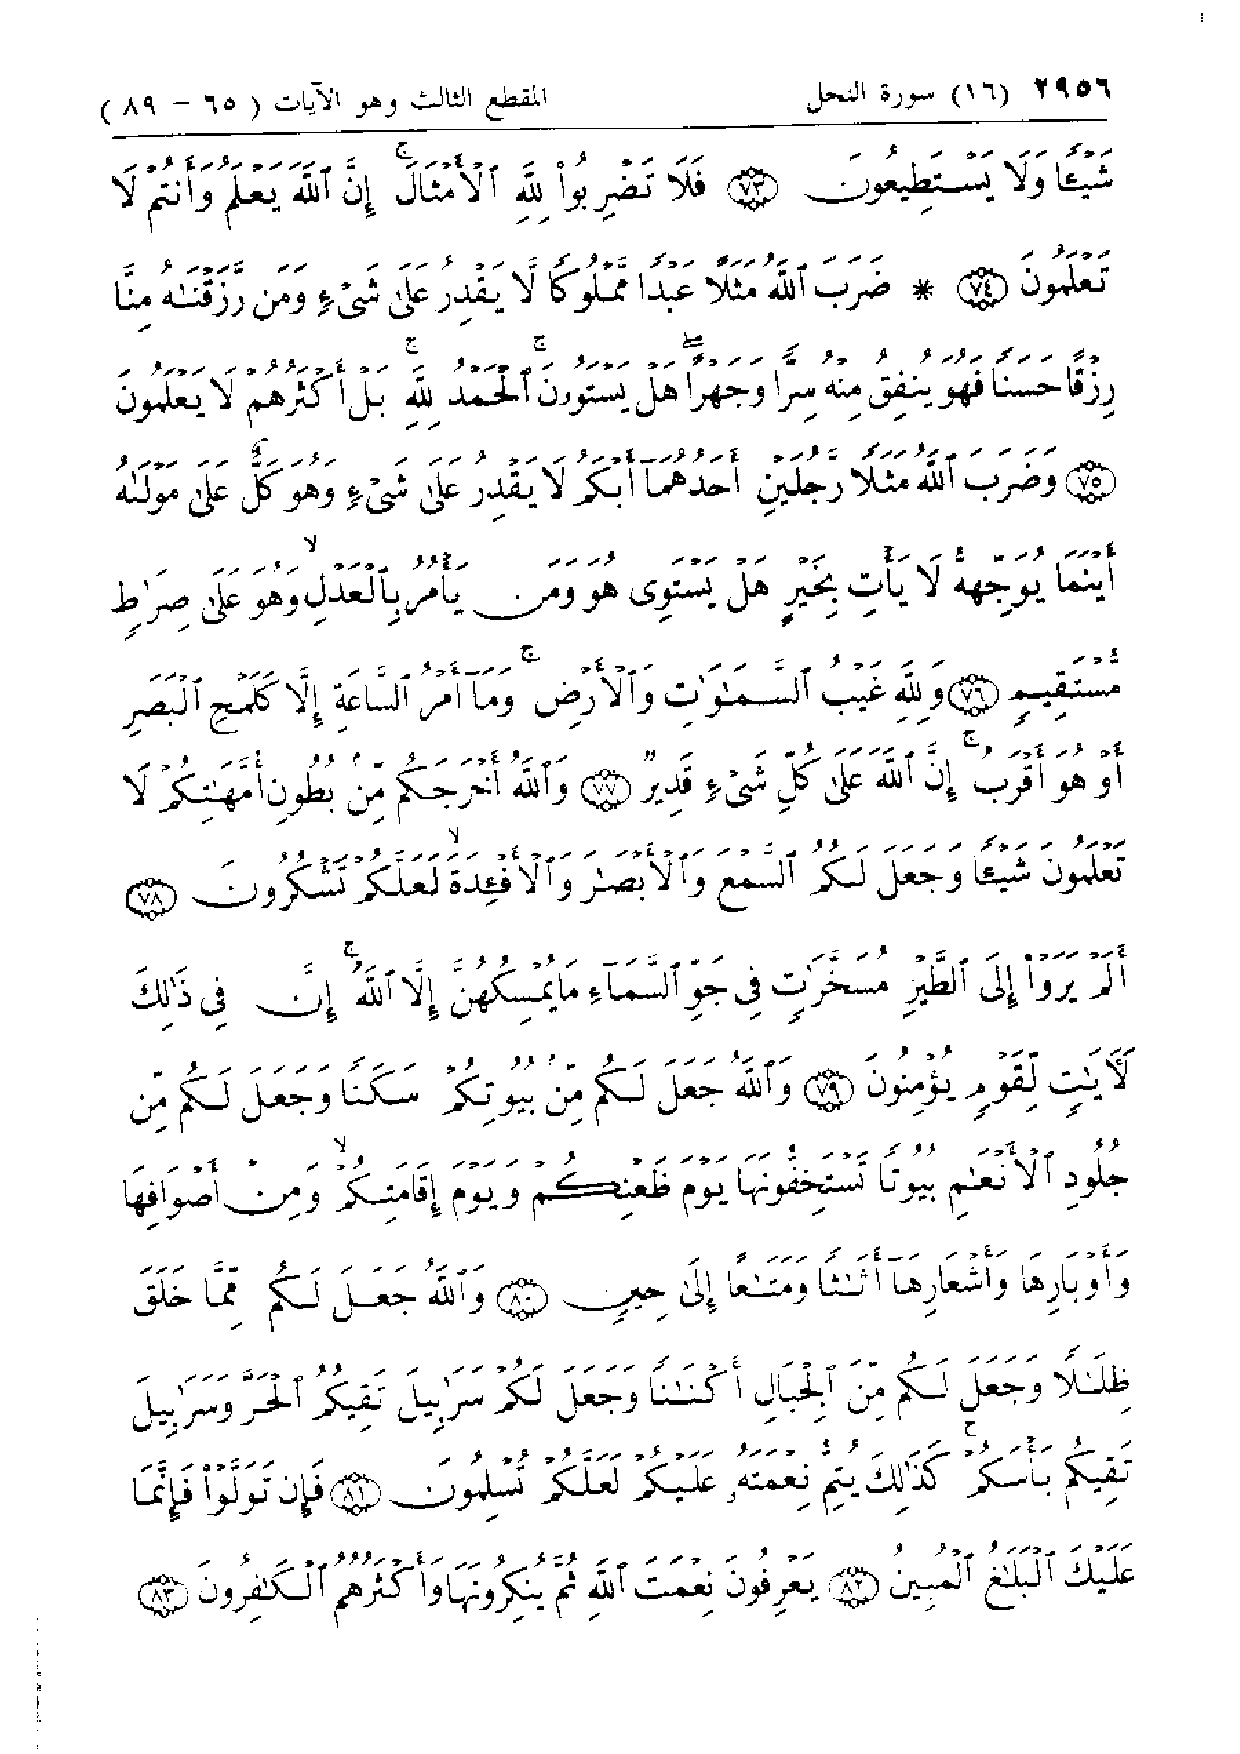 ٢٩٥٦ (١٦) سورة النحل المقطع الثالث وهو الآيات ( ٦٥ – ٨٩ )
شَيْـًٔا وَلَا يَسْتَطِيعُونَ ﴿٧٣﴾ فَلَا تَضْرِبُوا۟ لِلَّهِ ٱلْأَمْثَالَ ۚ إِنَّ ٱللَّهَ يَعْلَمُ وَأَنتُمْ لَا
تَعْلَمُونَ ﴿٧٤﴾ * ضَرَبَ ٱللَّهُ مَثَلًا عَبْدًا مَّمْلُوكًا لَّا يَقْدِرُ عَلَىٰ شَىْءٍ وَمَن رَّزَقْنَـٰهُ مِنَّا
رِزْقًا حَسَنًا فَهُوَ يُنفِقُ مِنْهُ سِرًّا وَجَهْرًا ۖ هَلْ يَسْتَوُۥنَ ۚ ٱلْحَمْدُ لِلَّهِ ۚ بَلْ أَكْثَرُهُمْ لَا يَعْلَمُونَ
﴿٧٥﴾ وَضَرَبَ ٱللَّهُ مَثَلًا رَّجُلَيْنِ أَحَدُهُمَآ أَبْكَمُ لَا يَقْدِرُ عَلَىٰ شَىْءٍ وَهُوَ كَلٌّ عَلَىٰ مَوْلَىٰهُ
أَيْنَمَا يُوَجِّههُّ لَا يَأْتِ بِخَيْرٍ هَلْ يَسْتَوِى هُوَ وَمَن يَأْمُرُ بِٱلْعَدْلِ ۙ وَهُوَ عَلَىٰ صِرَٰطٍ
مُّسْتَقِيمٍ ﴿٧٦﴾ وَلِلَّهِ غَيْبُ ٱلسَّمَـٰوَٰتِ وَٱلْأَرْضِ ۚ وَمَآ أَمْرُ ٱلسَّاعَةِ إِلَّا كَلَمْحِ ٱلْبَصَرِ
أَوْ هُوَ أَقْرَبُ ۚ إِنَّ ٱللَّهَ عَلَىٰ كُلِّ شَىْءٍ قَدِيرٌ ﴿٧٧﴾ وَٱللَّهُ أَخْرَجَكُم مِّنۢ بُطُونِ أُمَّهَـٰتِكُمْ لَا
تَعْلَمُونَ شَيْـًٔا وَجَعَلَ لَكُمُ ٱلسَّمْعَ وَٱلْأَبْصَـٰرَ وَٱلْأَفْـِٔدَةَ ۙ لَعَلَّكُمْ تَشْكُرُونَ ﴿٧٨﴾
أَلَمْ يَرَوْا۟ إِلَى ٱلطَّيْرِ مُسَخَّرَٰتٍ فِى جَوِّ ٱلسَّمَآءِ مَا يُمْسِكُهُنَّ إِلَّا ٱللَّهُ ۚ إِنَّ فِى ذَٰلِكَ
لَـَٔايَـٰتٍ لِّقَوْمٍ يُؤْمِنُونَ ﴿٧٩﴾ وَٱللَّهُ جَعَلَ لَكُم مِّنۢ بُيُوتِكُمْ سَكَنًا وَجَعَلَ لَكُم مِّن
جُلُودِ ٱلْأَنْعَـٰمِ بُيُوتًا تَسْتَخِفُّونَهَا يَوْمَ ظَعْنِكُمْ وَيَوْمَ إِقَامَتِكُمْ ۙ وَمِنْ أَصْوَافِهَا
وَأَوْبَارِهَا وَأَشْعَارِهَآ أَثَـٰثًا وَمَتَـٰعًا إِلَىٰ حِينٍ ﴿٨٠﴾ وَٱللَّهُ جَعَلَ لَكُم مِّمَّا خَلَقَ
ظِلَـٰلًا وَجَعَلَ لَكُم مِّنَ ٱلْجِبَالِ أَكْنَـٰنًا وَجَعَلَ لَكُمْ سَرَٰبِيلَ تَقِيكُمُ ٱلْحَرَّ وَسَرَٰبِيلَ
تَقِيكُم بَأْسَكُمْ ۚ كَذَٰلِكَ يُتِمُّ نِعْمَتَهُۥ عَلَيْكُمْ لَعَلَّكُمْ تُسْلِمُونَ ﴿٨١﴾ فَإِن تَوَلَّوْا۟ فَإِنَّمَا
عَلَيْكَ ٱلْبَلَـٰغُ ٱلْمُبِينُ ﴿٨٢﴾ يَعْرِفُونَ نِعْمَتَ ٱللَّهِ ثُمَّ يُنكِرُونَهَا وَأَكْثَرُهُمُ ٱلْكَـٰفِرُونَ ﴿٨٣﴾